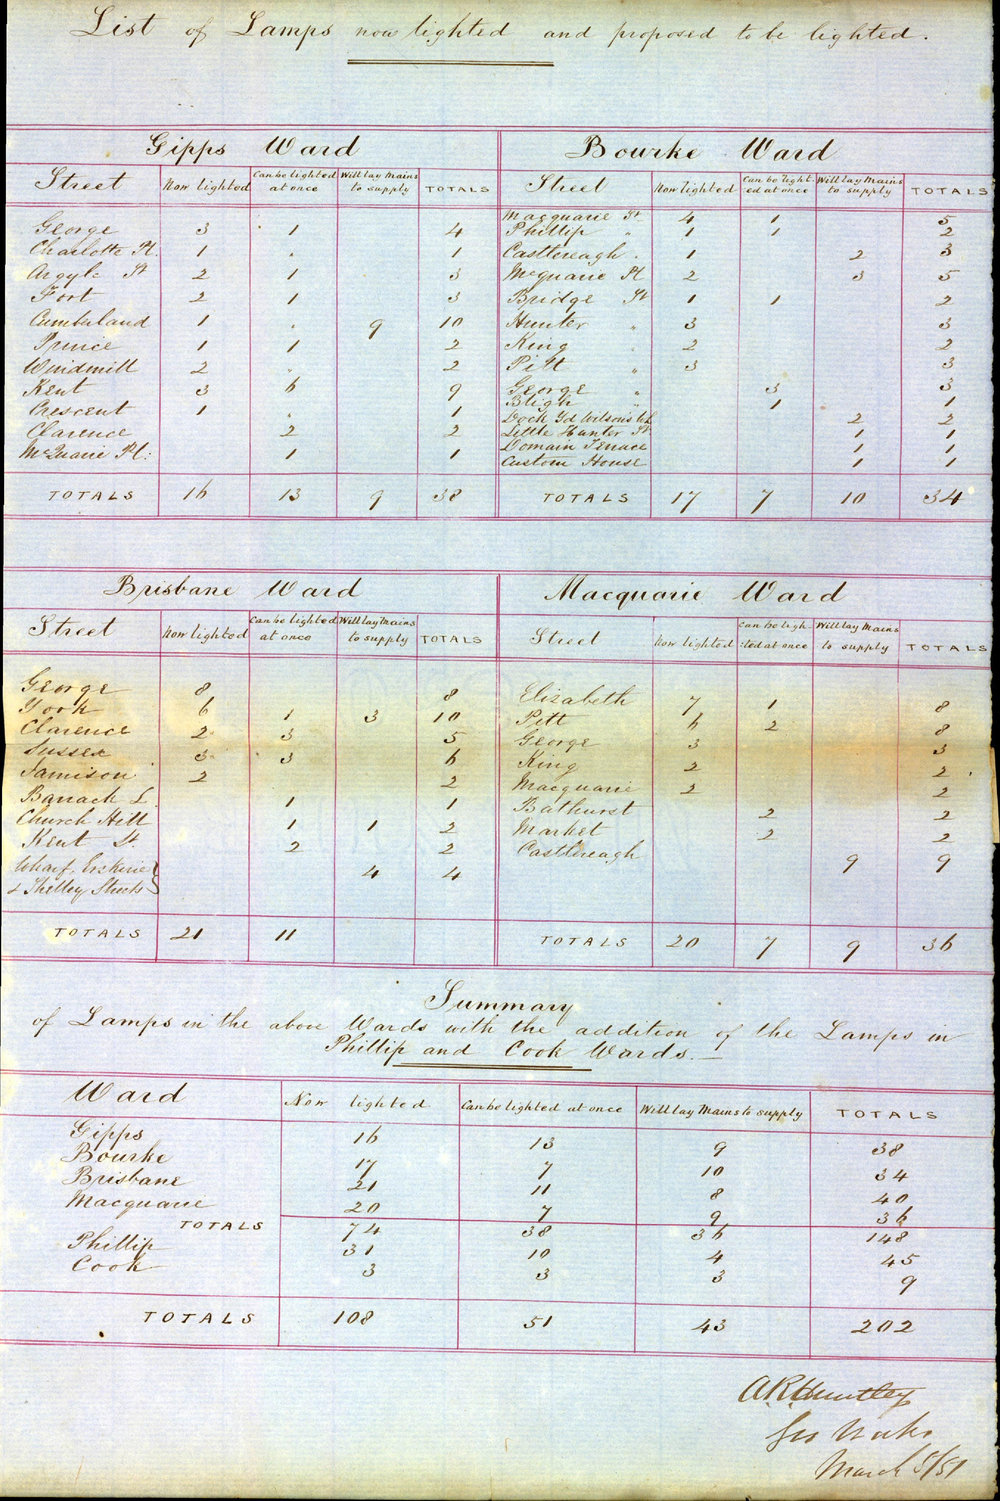 List of Lamps now lighted and proposed to be lighted.
Gipps Ward
Street Now lighted Can be lighted at once Will lay Mains to supply TOTALS
George 3 1 4
Charlotte Pl. 1 . 1
Argyle St 2 1 3
Fort 2 1 3
Cumberland 1 . 9 10
Prince 1 1 2
Windmill 2 " 2
Kent 3 6 9
Crescent 1 . 1
Clarence 2 2
McQuarie Pl. 1 1
TOTALS 16 13 9 38
Bourke Ward
Street Now lighted Can be light-ed at once Will lay Mains to supply TOTALS
Macquarie St 4 1 5
Phillip " 1 1 2
Castlereagh . 1 2 3
McQuarie Pl 2 3 5
Bridge St 1 1 2
Hunter " 3 3
King . 2 2
Pitt " 3 3
George " 3 3
Bligh " 1 1
Dock Yd Wilson's Wh 2 2
Little Hunter St 1 1
Domain Terrace 1 1
Custom House 1 1
TOTALS 17 7 10 34
Brisbane Ward
Street Now lighted Can be lighted at once Will lay Mains to supply TOTALS
George 8 8
York 6 1 3 10
Clarence 2 3 5
Sussex 3 3 6
Jamison 2 2
Barrack L 1 1
Church Hill 1 1 2
Kent St. 2 2
Wharf, Erskine
& Shelley Streets 4 4
TOTALS 21 11
Macquarie Ward
Street Now lighted Can be ligh-ted at once Will lay Mains to supply TOTALS
Elizabeth 7 1 8
Pitt 6 2 8
George 3 3
King 2 2
Macquarie 2 2
Bathurst 2 2
Market 2 2
Castlereagh 9 9
TOTALS 20 7 9 36
Summary
of Lamps in the above Wards with the addition of the Lamps in
Phillip and Cook Wards.
Ward Now lighted Can be lighted at once Will lay Mains to supply TOTALS
Gipps 16 13 9 38
Bourke 17 7 10 34
Brisbane 21 11 8 40
Macquarie 20 7 9 36
TOTALS 74 38 36 148
Phillip 31 10 4 45
Cook 3 3 3 9
TOTALS 108 51 43 202
A.R. Huntley
Gas Works
March 5/51